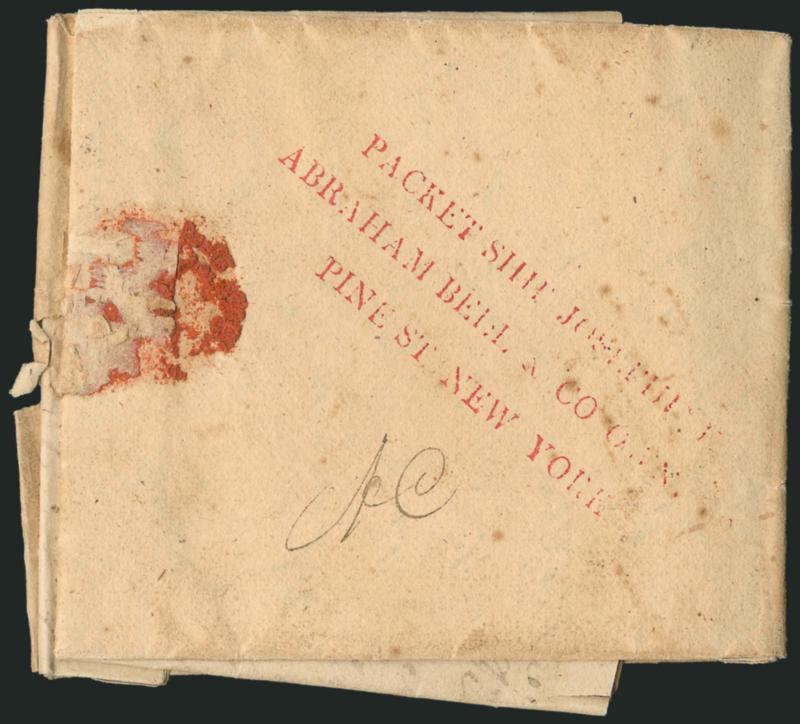 PACKET SHIP JOSEPHINE
ABRAHAM BELL & CO
PINE ST. NEW YORK